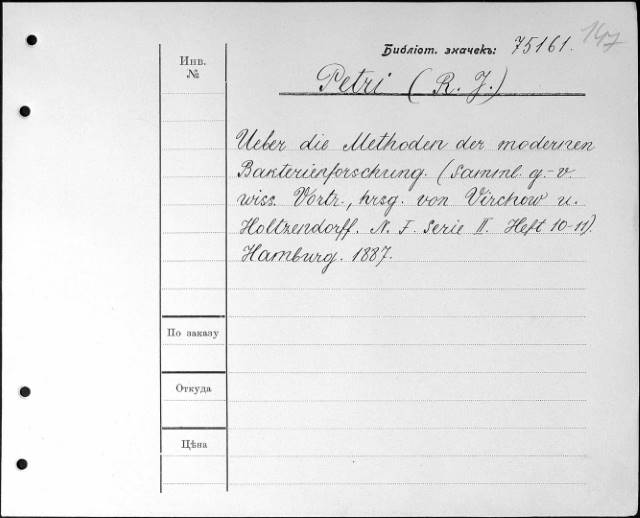 147
Библіот. значекъ: 75161.
Инв.
№
Petri (R. J.)
Ueber die Methoden der modernen
Bakterienforschung. (Samml. g.-v
wiss. Vortr., hrsg. von Virchow u.
Holtzendorff. N. F. Serie II. Heft 10-11).
Hamburg. 1887.
По заказу
Откуда
Цѣна